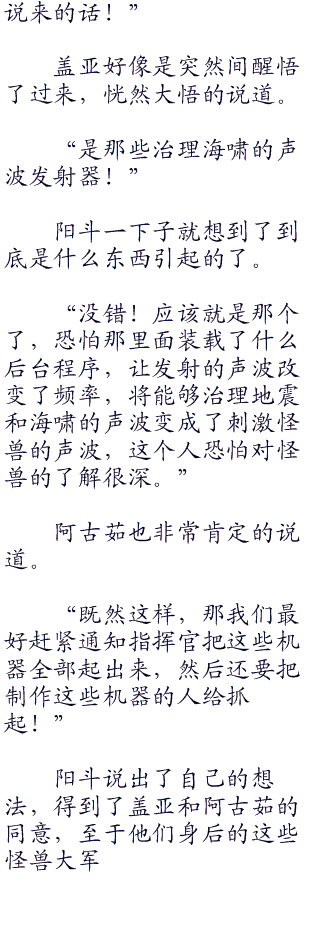 说来的话！”
盖亚好像是突然间醒悟
了过来，恍然大悟的说道。
“是那些治理海啸的声
波发射器！”
阳斗一下子就想到了到
底是什么东西引起的了。
“没错！应该就是那个
了，恐怕那里面装载了什么
后台程序，让发射的声波改
变了频率，将能够治理地震
和海啸的声波变成了刺激怪
兽的声波，这个人恐怕对怪
兽的了解很深。”
阿古茹也非常肯定的说
道。
“既然这样，那我们最
好赶紧通知指挥官把这些机
器全部起出来，然后还要把
制作这些机器的人给抓
起！”
阳斗说出了自己的想
法，得到了盖亚和阿古茹的
同意，至于他们身后的这些
怪兽大军